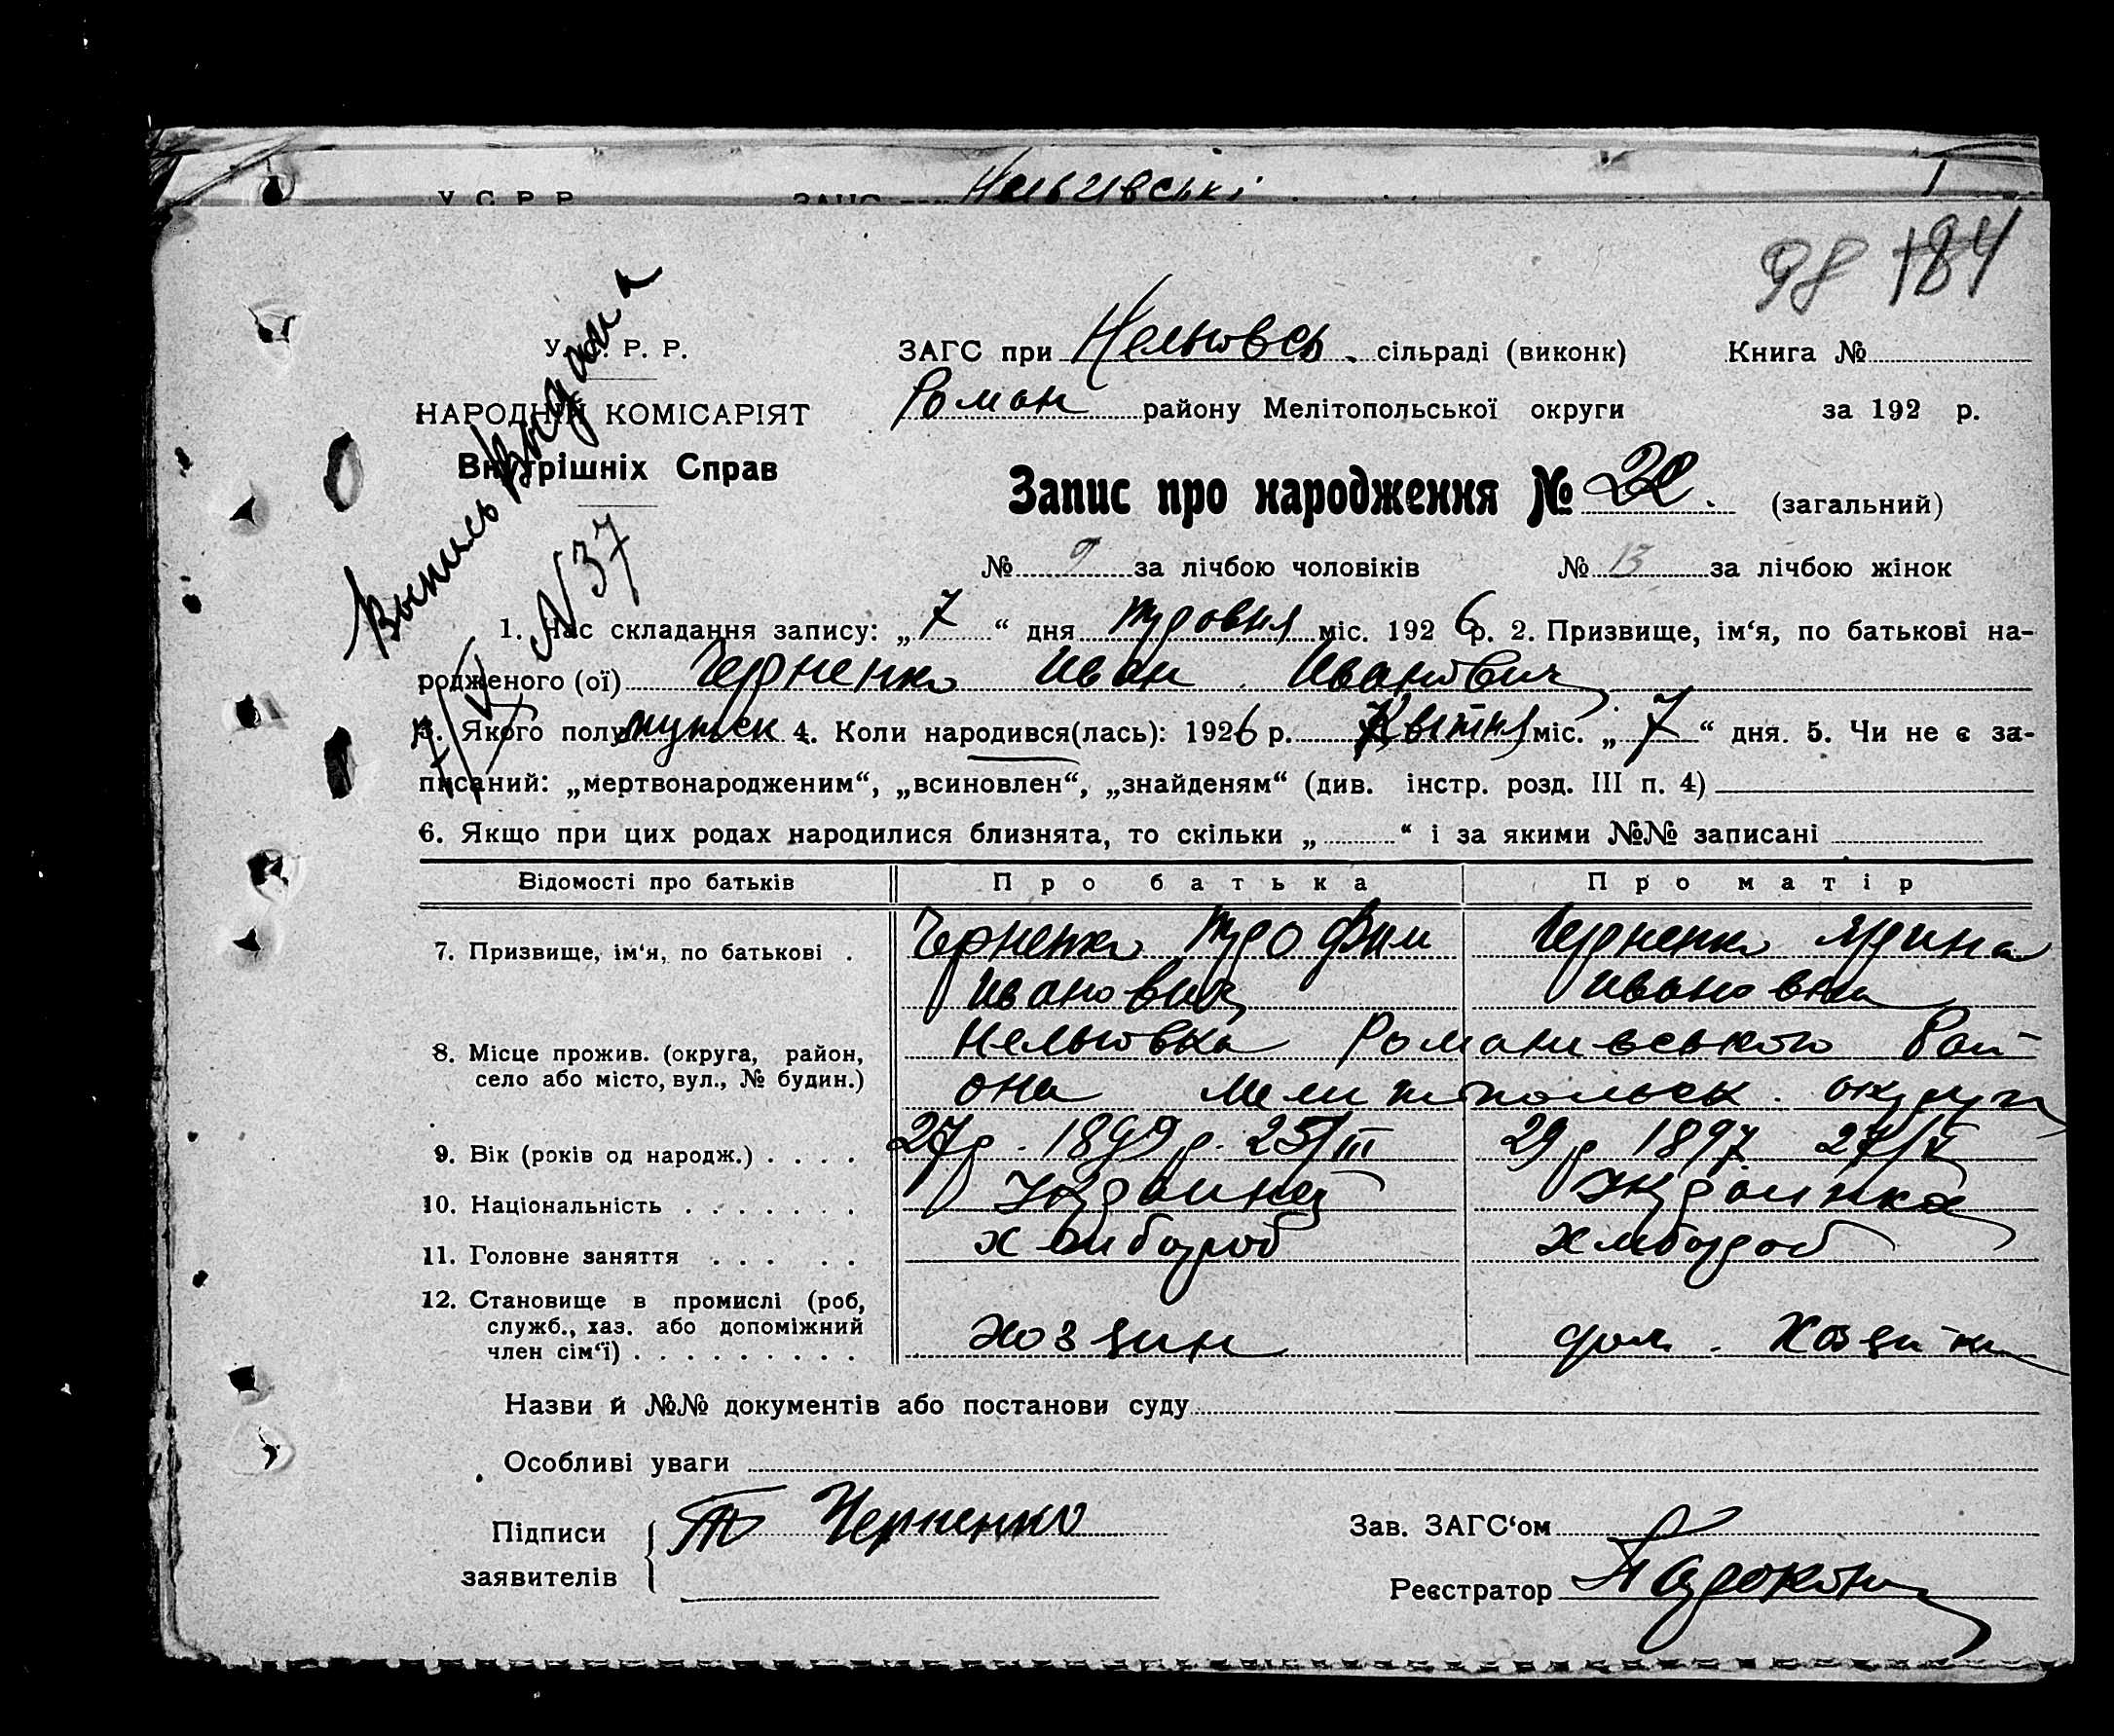 У. С. Р. Р. ЗАГС при
98 184
У. С. Р. Р. ЗАГС при Нельговсь. сільраді (виконк) Книга №
Роман району Мелітопольської округи за 192 р.
НАРОДНІЙ КОМІСАРІЯТ
Внутрішніх Справ
Выпись выдана
7/V N 37
Запис про народження № 22. (загальний)
№ 9 за лічбою чоловіків № 13 за лічбою жінок
1. Час складання запису: „7“ дня травня міс. 1926 р. 2. Призвище, ім‘я, по батькові на-
родженого (ої) Черненко Иван Иванович
3. Якого полу мужск 4. Коли народився(лась): 1926 р. Квітня міс. „7“ дня. 5. Чи не є за-
писаний: „мертвонародженим“, „всиновлен“, „знайденям“ (див. інстр. розд. III п. 4)
6. Якщо при цих родах народилися близнята, то скільки „ “ і за якими №№ записані
Відомості про батьків Про батька Про матір
7. Призвище, ім‘я, по батькові . Черненко Трофим Черненко Ярина
Иванович Ивановна
8. Місце прожив. (округа, район, Нельговка Романивського Рай-
село або місто, вул., № будин.) она Мелитопольск. округи
9. Вік (років од народж.) . . . . 27 р. 1899 р. 25/III 29 р 1897 27/V
10. Національність . . . . . . . Украинец Украинка
11. Головне заняття . . . . . Хлибороб Хлибороб
12. Становище в промислі (роб,
служб., хаз. або допоміжний Хозяин дом. Хозяйка
член сім‘ї) . . . . . . . . .
Назви й №№ документів або постанови суду
Особливі уваги
Підписи Т Черненко Зав. ЗАГС‘ом
заявителів Реєстратор